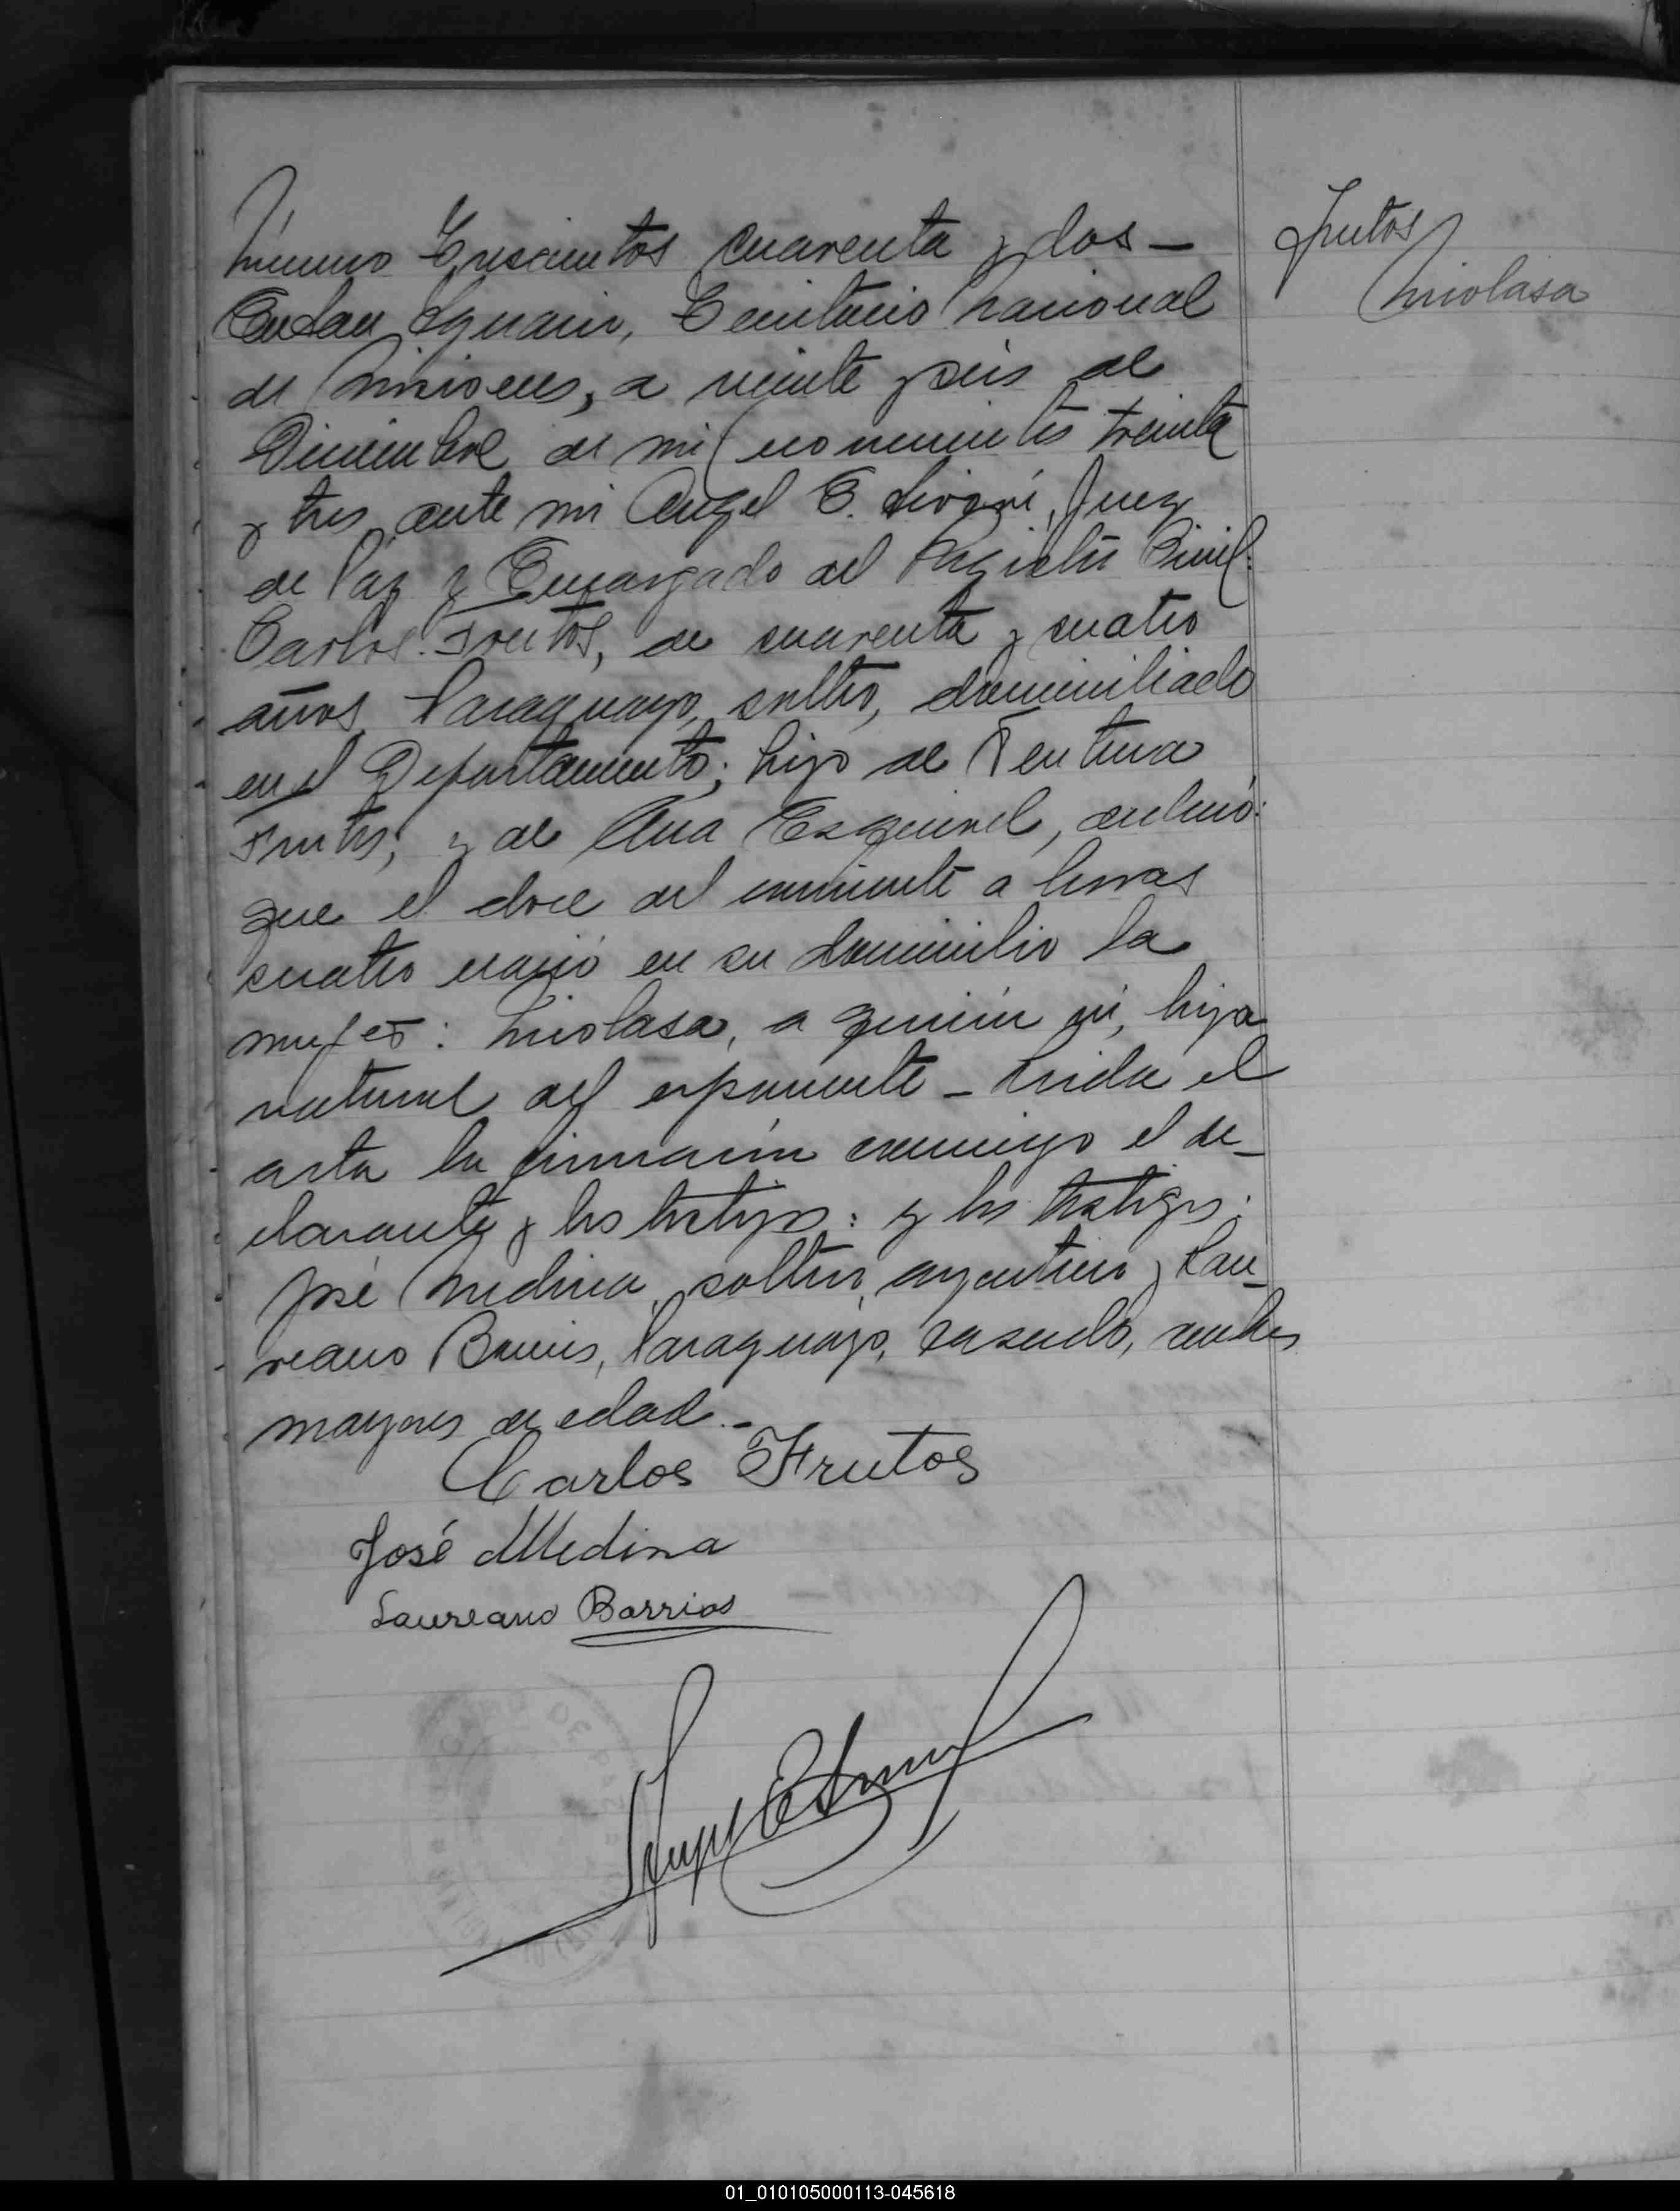 Número Trescientos cuarenta y dos —
Frutos
Nicolasa
En San Ignacio, Territorio Nacional
de Misiones, a veinte y seis de
Diciembre de mil novecientos treinta
y tres, ante mi Angel E. Juez
de Paz y Encargado del Registro Civil:
Carlos Frutos, de cuarenta y cuatro
años, Paraguayo, soltero, domiciliado
en el Departamento; hijo de Ventura
Frutos; y de Ana Esquivel, declaró:
que el doce del corriente a horas
cuatro nació en su domicilio la
mujer: Nicolasa, a quien ví, hija
natural del exponente — Leida el
acta la firmaron conmigo el de-
clarante y los testigos: y los testigos:
José Medina, soltero, argentino y Lau-
reano Barrios, Paraguayo, casado, ambos
mayores de edad.—
Carlos Frutos
José Medina
Laureano Barrios
01_010105000113-045618